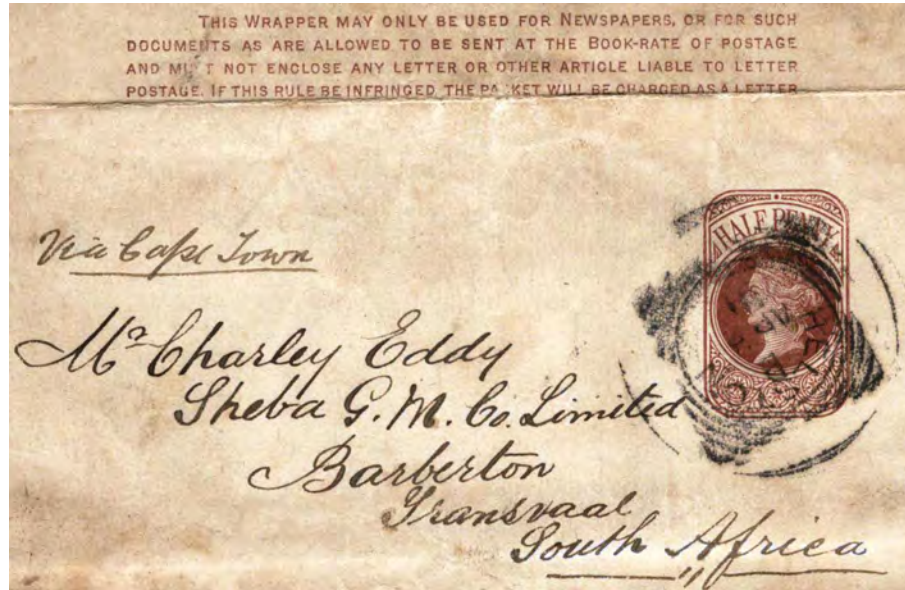 THIS WRAPPER MAY ONLY BE USED FOR NEWSPAPERS, OR FOR SUCH
DOCUMENTS AS ARE ALLOWED TO BE SENT AT THE BOOK-RATE OF POSTAGE
AND MUST NOT ENCLOSE ANY LETTER OR OTHER ARTICLE LIABLE TO LETTER
POSTAGE. IF THIS RULE BE INFRINGED, THE PACKET WILL BE CHARGED AS A LETTER
HALFPENNY
Via Cape Town
Mr Charley Eddy
Sheba G. M. Co. Limited
Barberton
Transvaal
South Africa